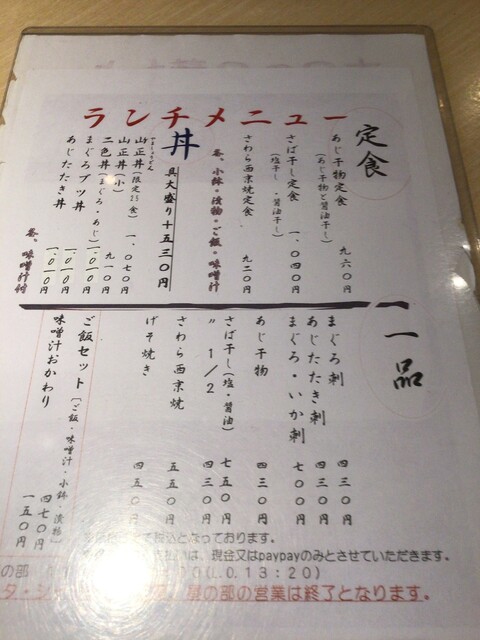 ランチメニュー
定食
あじ干物定食
(あじ干物と醤油干し)
九六〇円
さば干し定食
(塩干し・醤油干し)
一、〇四〇円
さわら西京焼定食
九二〇円
各、小鉢・漬物・ご飯・味噌汁
丼
具大盛り+五三〇円
山正丼(限定15食)
一、〇七〇円
山正丼(小)
九一〇円
二色丼(まぐろ・あじ)
一、〇一〇円
まぐろブツ丼
一、〇一〇円
あじたたき丼
一、〇一〇円
各、味噌汁付
一品
まぐろ刺
四三〇円
あじたたき刺
四三〇円
まぐろ・いか刺
七〇〇円
あじ干物
四三〇円
さば干し(塩・醤油)
七五〇円
〃 1/2
四三〇円
さわら西京焼
五五〇円
げそ焼き
四五〇円
ご飯セット [ご飯・味噌汁・小鉢・漬物]
四七〇円
味噌汁おかわり
一五〇円
税込となっております。
は、現金又はpaypayのみとさせていただきます。
の部
(L.O.13:20)
昼の部の営業は終了となります。